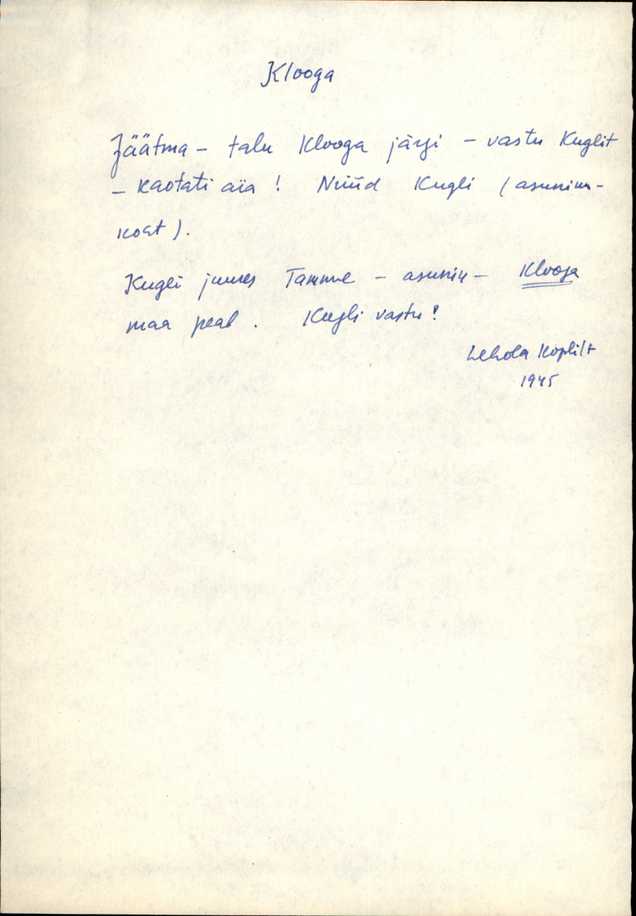 Klooga
Jäätma – talu Klooga järgi – vastu Kuglit
– kaotati ära! Nüüd Kugli (asunim-
kost).
Kugli juures Tamme – asunin – Klooga
maa peal. Kugli vastu!
Lehola Koplilt
1945